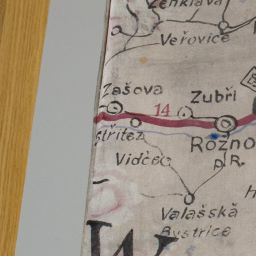 Ženklava
Veřovice
Zašova
14
Zubři
střítež
Rožno
p. R.
Vidče
Valašská
Bystrice
W